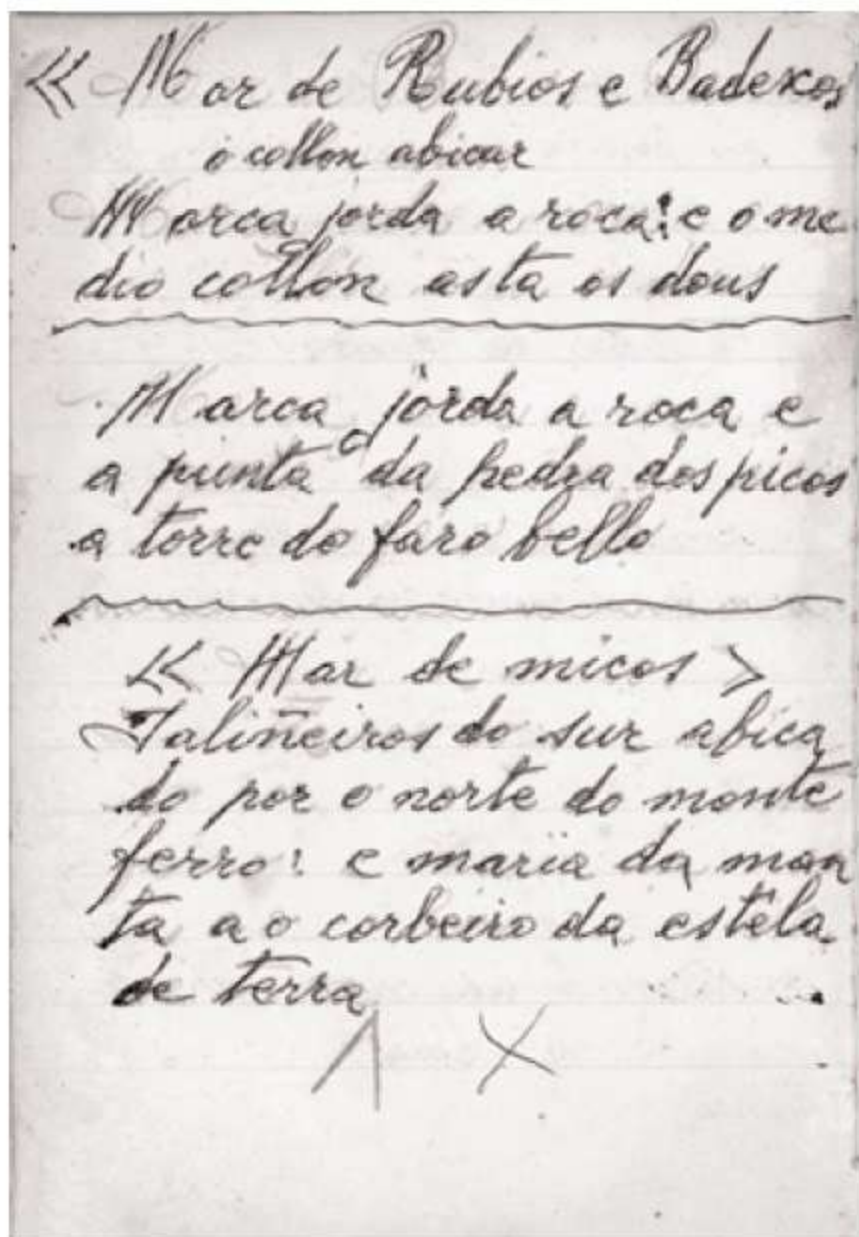 << Mar de Rubios e Badexos
o collon abicar
Marca jorda a roca: e o me
dio collon asta os dous
Marca jorda a roca e
a punta da pedra dos picos
a torre do faro bello
<< Mar de micos >
Taliñeiros do sur abica
do por o norte do monte
ferro: e maria da man
ta a o corbeiro da estêla
de terra
1 X